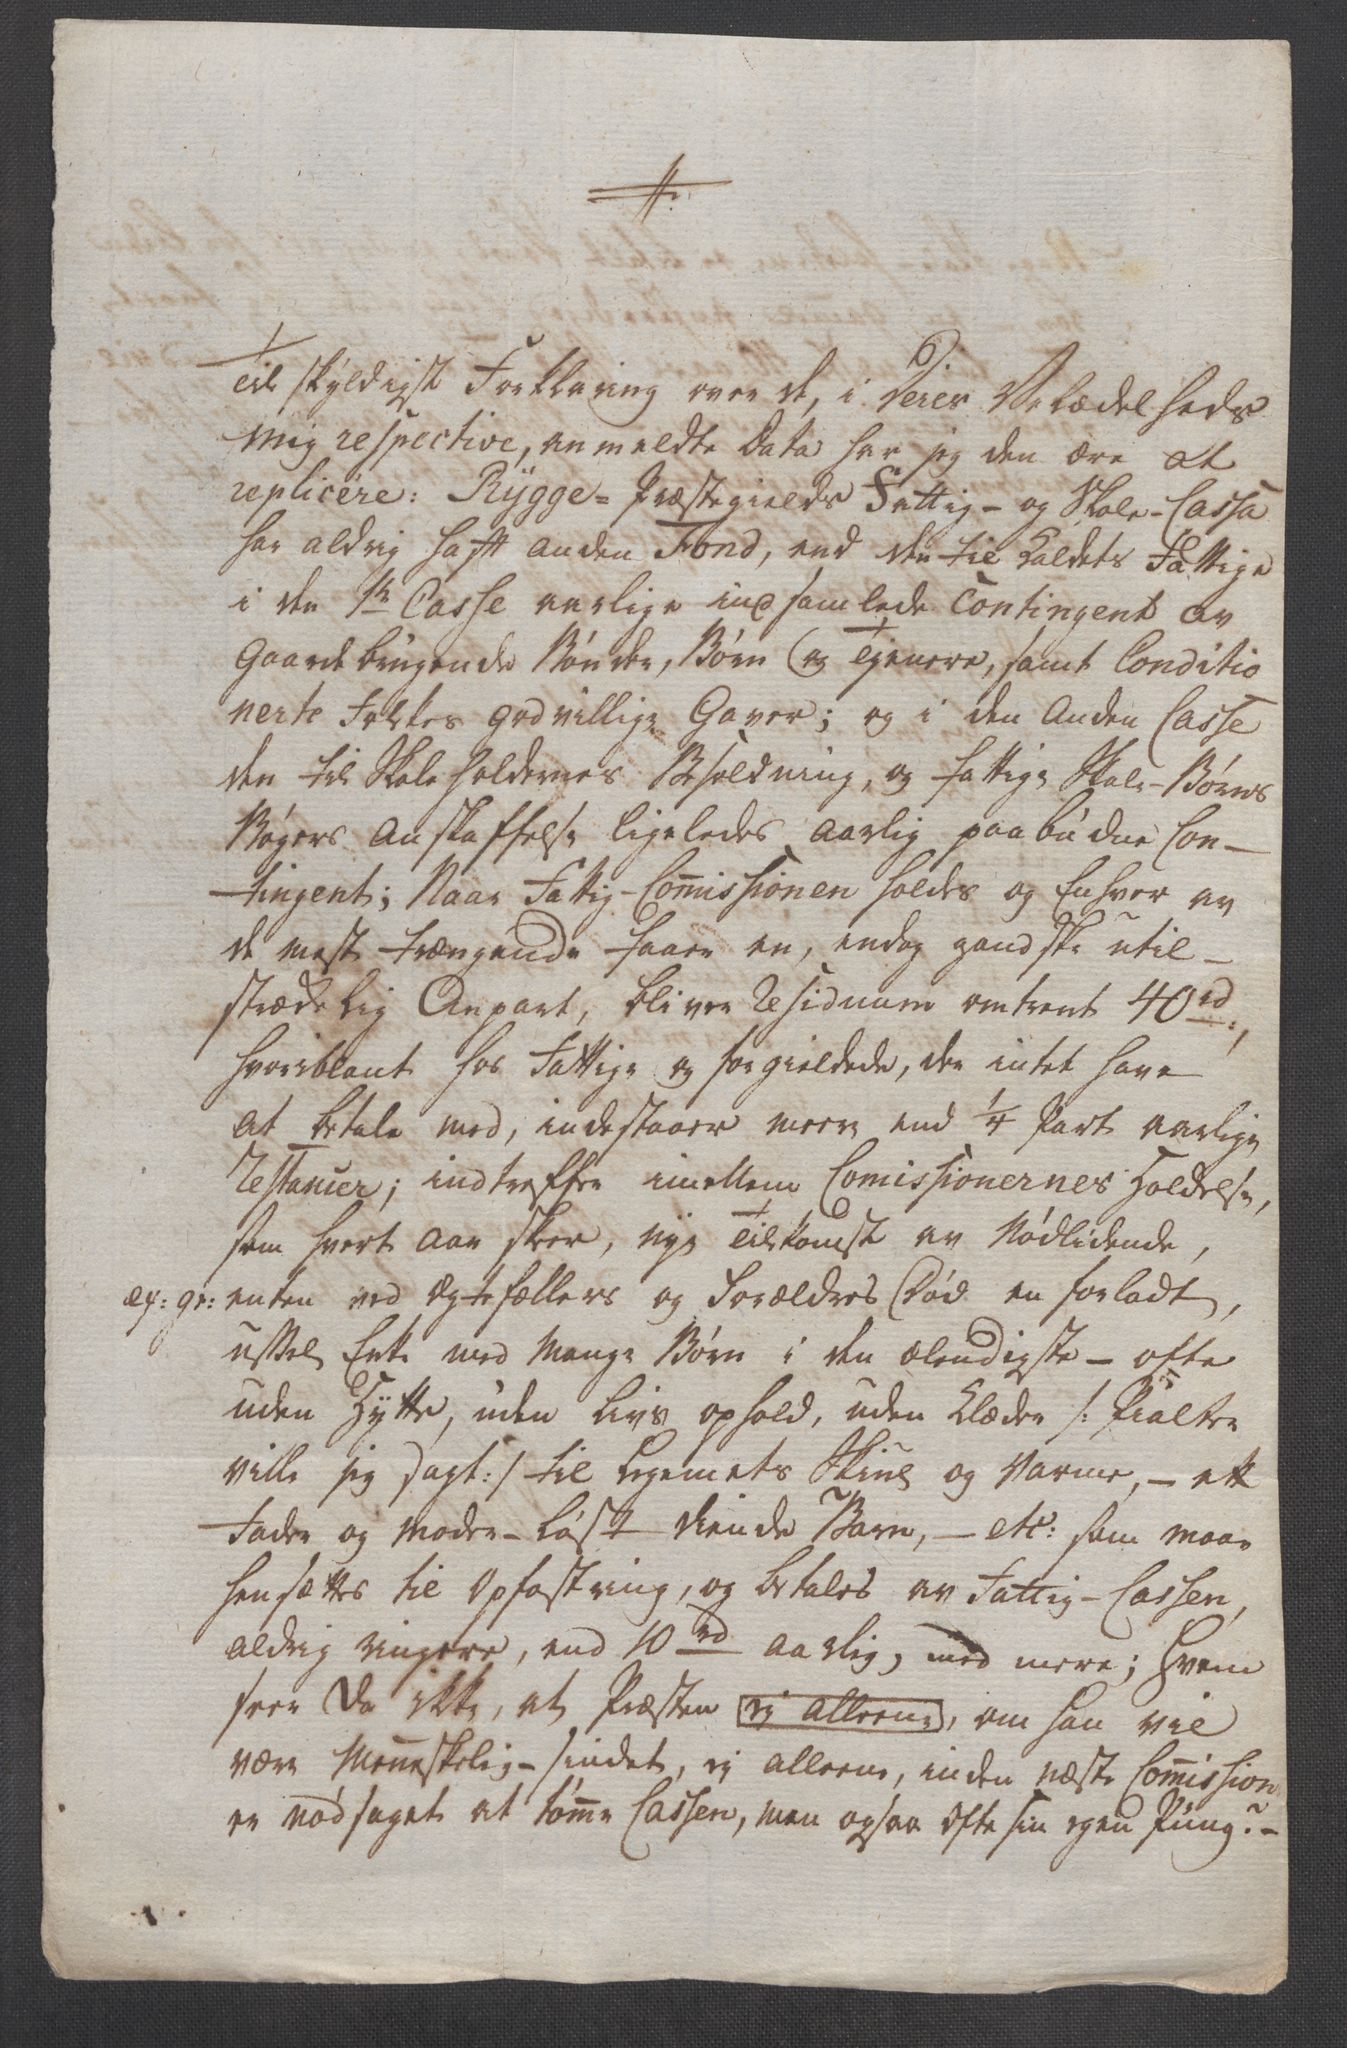 Til skyldigst Forklaring over de, i Deres Velædelheds
mig respective, anmeldte Data har jeg den ære at
replicére: Rÿgge-Præstegields Fattig- og Skole-Cassa
har aldrig haft anden Fond, end den til Caldets Fattige
i den 1te Casse aarlige indsamlede Contingent av
Gaardebrugende Bønder, Børn og Tjenere, samt Conditio
nerte Folkes godvillige Gaver; og i den Anden Casse
den til Skoleholdernes Besoldning, og fattige Skole-Børns
Bøgers Anskaffelse ligeledes aarlig paabudne Con-
tingent; Naar Fattig-Com̅issionen holdes og Enhver av
de mest trængende faaer en, endog gandske util-
strædelig Anpart, bliver Residuum omtrent 40 rd.,
hvoriblant hos Fattige og forgieldede, der intet have
at betale med, indestaaer meere end 1/4 Part aarlige
Restancer; indtreffer imellem Comissionernes Holdelse,
som hvert Aar skeer, nye Tilkomst av Nødlidende,
ex: gr: enten ved Egtefællers og Forældres Død en forladt,
ussel Enke med mange Børn i den elendigste - ofte
uden Hytte, uden Livs ophold, uden Klæder /: Pialter
ville jeg sagt :/ til Legemets Skiul og Varme, - ett
Fader og Moder-løst diende Barn, - etc: som maae
hensættes til Opfostring, og betales av Fattig-Cassen,
aldrig ringere, end 10 rd aarlig, med mere; Hvem
seer da ikke, at Præsten ej alleene, om han vil
være Men̅eskelig-sindet, ej alleene, inden næste Com̅ission
er nødsaget at tøm̅e Cassen, men ogsaa ofte sin egen Pung? -